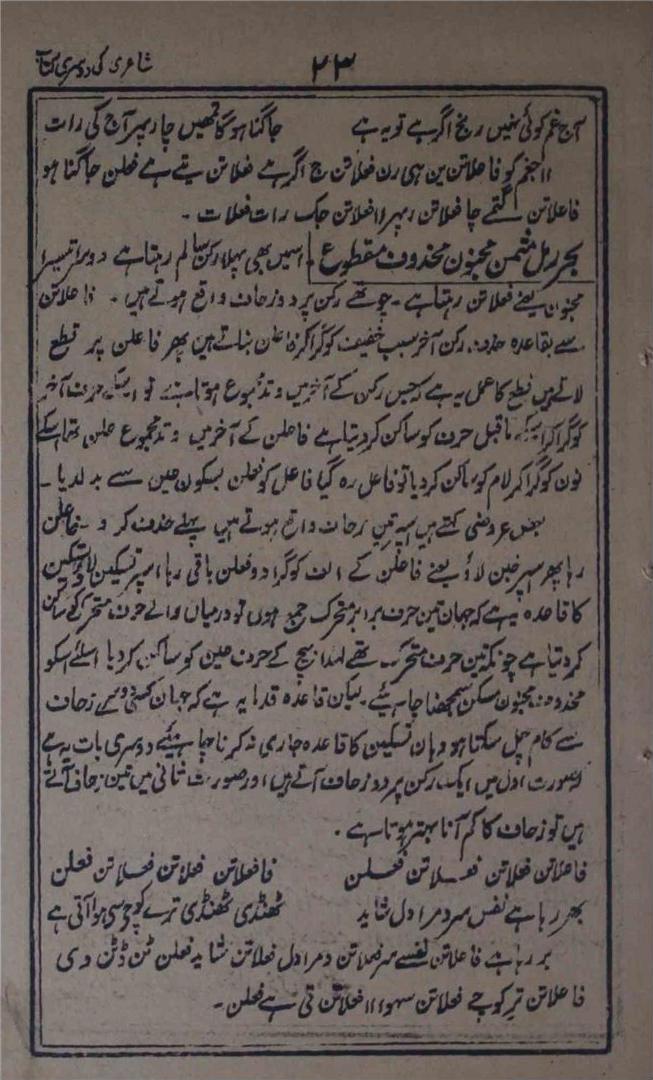 شاعری کی دوسری کتاب
۲۳
آج غم کوئی نہیں رنج اگر ہے تو یہ ہے جاگنا ہوگا تمھیں چار پہر آج کی رات
ااجغم کو فاعلاتن ین ہی رن فعلاتن ج اگر ہے فعلاتن یے ہے فعلن جاگنا ہو
فاعلاتن گتمے چا فعلاتن رپہراا فعلاتن جک رات فعلات ۔
بحر رمل مثمن مجنون محذوف مقطوع ۔ اسمیں بھی پہلا رکن سالم رہتا ہے دوسرا تیسرا
مجنون یعنے فعلاتن رہتا ہے ۔ چوتھے رکن پر دو زحاف واقع ہوتے ہیں ۔ فاعلاتن
سے بقاعدہ حذف رکن آخر سبب خفیف کو گرا کر فاعلن بناتے ہیں پھر فاعلن پر قطع
لاتے ہیں قطع کا عمل یہ ہے کہ جس رکن کے آخر میں وتد مجموع ہوتا ہے تو اسکے حرف آخر
کو گرا کر اسکے ماقبل حرف کو ساکن کر دیتا ہے فاعلن کے آخر میں وتد مجموع علن تھا اسکے
نون کو گرا کر لام کو ساکن کر دیا تو فاعل رہ گیا فاعل کو فعلن بسکون عین سے بدلدیا ۔
بعض عروضی کہتے ہیں اسپر تین زحاف واقع ہوتے ہیں پہلے حذف کرو ۔ فاعلن
رہا پھر اسپر خبن لاؤ یعنے فاعلن کے الف کو گرا دو فعلن باقی رہا اسپر تسکین لاؤ تسکین
کا قاعدہ یہ ہے کہ جہان تین حرف برابر متحرک جمع ہوں تو درمیاں والے حرف متحرک کو ساکن
کر دیتا ہے چونکہ تین حرف متحرک تھے لہذا بیچ کے حرف عین کو ساکن کر دیا اسلئے اسکو
محذوف مجنون مسکن سمجھنا چاہیئے ۔ لیکن قاعدہ قدما یہ ہے کہ جہان کسی دوسرے زحاف
سے کام چل سکتا ہو وہان تسکین کا قاعدہ جاری نہ کرنا چاہیئے دوسری بات یہ ہے
کہ صورت اول میں ایک رکن پر دو زحاف آتے ہیں اور صورت ثانی میں تین زحاف آتے
ہیں تو زحاف کا کم آنا بہتر ہوتا ہے ۔
فاعلاتن فعلاتن فعلاتن فعلن فاعلاتن فعلاتن فعلاتن فعلن
بھر رہا ہے نفس سرد مرا دل شاید ٹھنڈی ٹھنڈی ترے کوچہ سی ہوا آتی ہے
بر رہا ہے فاعلاتن نفسے سر فعلاتن دمرادل فعلاتن شاید فعلن ٹن ڈٹن دی
فاعلاتن ترکوچے فعلاتن سہوااا فعلاتن تی ہے فعلن ۔